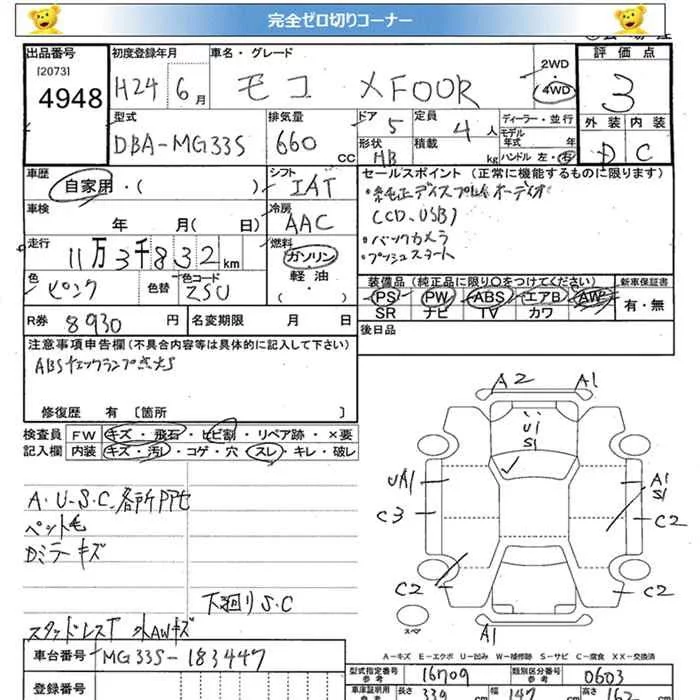 完全ゼロ切りコーナー
出品番号 初度登録年月 車名・グレード 2WD 評価点
[2073] 4948 H24 6月 モコ XFOUR 4WD 3
型式 排気量 ドア 定員 ディーラー・並行 外装 内装
DBA-MG33S 660 CC 5 4人 モデル年式 年 D C
形状 HB 積載 kg ハンドル 左・右
車歴 シフト セールスポイント(正常に機能するものに限ります)
自家用・( ) IAT ・純正ディスプレイオーディオ
車検 冷房 (CD、USB)
年 月( 日) AAC ・バックカメラ
走行 燃料 ・プッシュスタート
11万3千832km ガソリン
軽油
( ・ )
色 色替 色コード 装備品(純正品に限り○をつけてください) 新車保証書
ピンク ZSU PS・PW・ABS・エアB・AW 有・無
SR ナビ TV カワ
R券 8930円 名変期限 月 日 後日品
注意事項申告欄(不具合内容等は具体的に記入して下さい)
ABSチェックランプ点灯
修復歴 有〔箇所 〕
検査員 FW キズ・飛石・ヒビ割・リペア跡・×要
記入欄 内装 キズ・汚レ・コゲ・穴・スレ・キレ・破レ
A2 A1
U1
S1
UA1 A1
S1
C3 C2
C2 C2
スペア A1
A・U-S・C各所
ペット毛
Dミラーキズ
下廻りS・C
スタッドレスT 外AWキズ
A−キズ E−エクボ U−凹み W−補修跡 S−サビ C−腐食 XX−交換済
車台番号 MG33S-183447
登録番号
型式指定番号 参考 16709 類別区分番号 参考 0603
車庫証明用 参考 長さ 339 cm 幅 147 cm 高さ